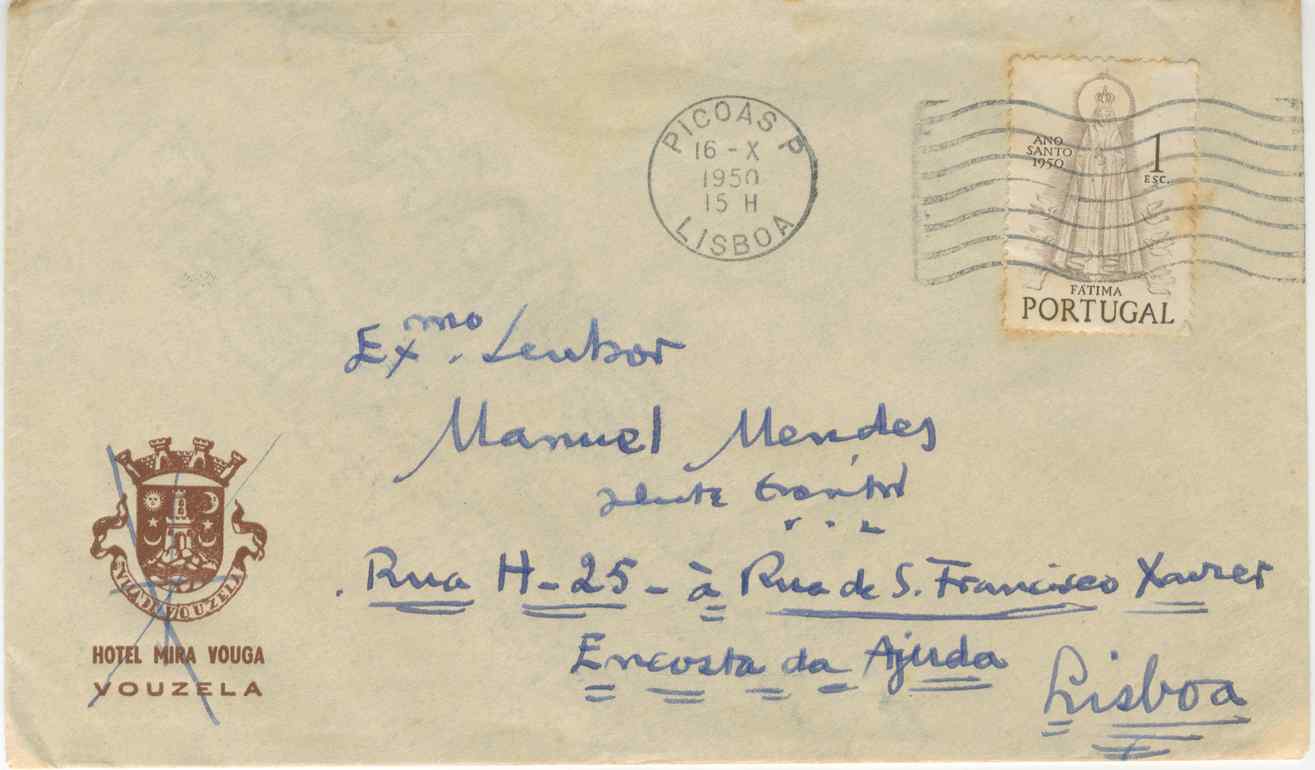 PICOAS P
16 - X
1950
15 H
LISBOA
ANO
SANTO
1950
1
ESC.
FÁTIMA
PORTUGAL
Exmo. Senhor
Manuel Mendes
Rua H-25- à Rua de S. Francisco Xavier
Encosta da Ajuda
Lisboa
VILA DE VOUZELA
HOTEL MIRA VOUGA
VOUZELA